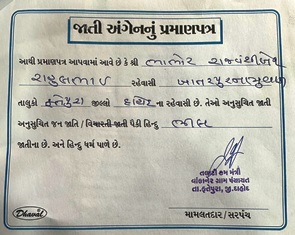 જાતી અંગેનનું પ્રમાણપત્ર
આથી પ્રમાણપત્ર આપવામાં આવે છે કે શ્રી ભાભોર
રહેવાસી
તાલુકો ફતેપુરા જીલ્લો દાહોદ ના રહેવાસી છે. તેઓ અનુસુચિત જાતી
અનુસુચિત જન જાતિ / વિચારતી-જાતી પૈકી હિન્દુ ભીલ
જાતીના છે. અને હિન્દુ ધર્મ પાળે છે.
તલાટી કમ મંત્રી
ગ્રામ પંચાયત
તા.ફતેપુરા, જી.દાહોદ
મામલતદાર / સરપંચ
Dhaval